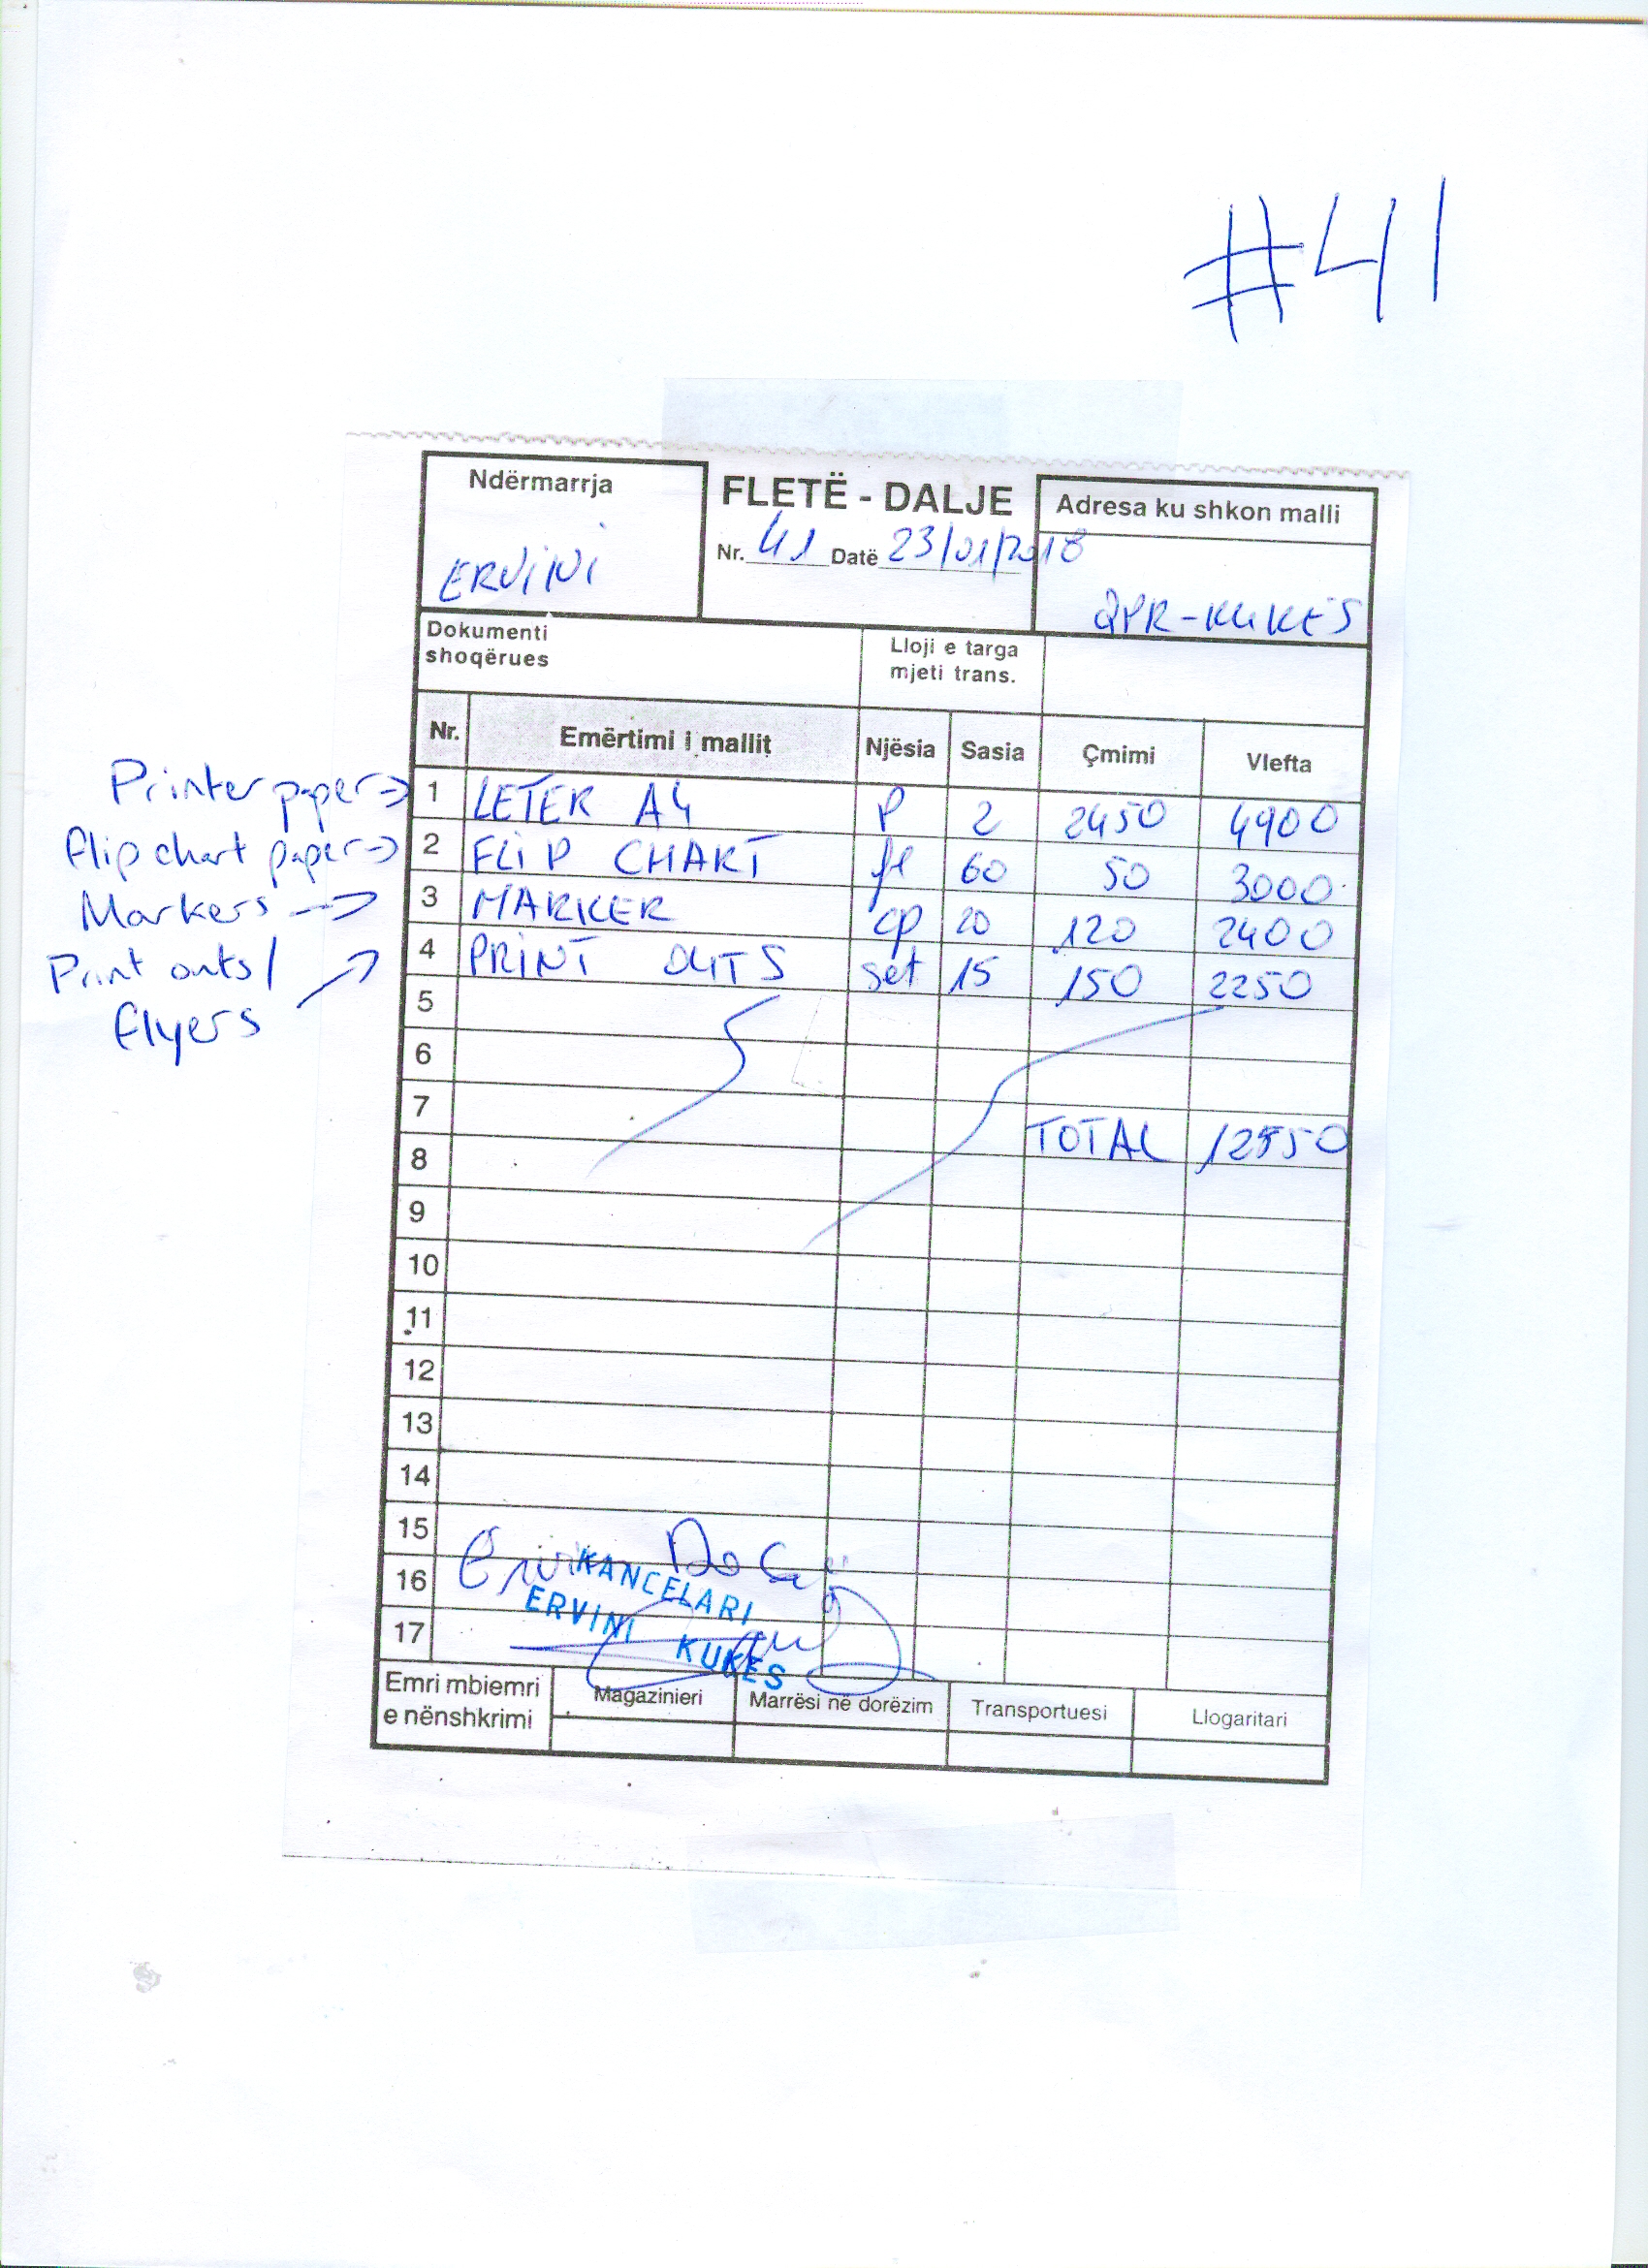 #41
Ndërmarrja
ERVINI
FLETË - DALJE
Nr. 41 Datë 23/01/2018
Adresa ku shkon malli
QPR-KUKËS
Dokumenti
shoqërues
Lloji e targa
mjeti trans.
Nr. Emërtimi i mallit Njësia Sasia Çmimi Vlefta
Printer paper→ 1 LETER A4 P 2 2450 4900
flip chart paper→ 2 FLIP CHART fl 60 50 3000
Markers → 3 MARKER cp 20 120 2400
Print outs/ 4 PRINT OUTS set 15 150 2250
flyers
5
6
7
TOTAL 12550
8
9
10
11
12
13
14
15
16
17
KANCELARI
ERVINI KUKES
Emri mbiemri
e nënshkrimi
Magazinieri Marrësi në dorëzim Transportuesi Llogaritari